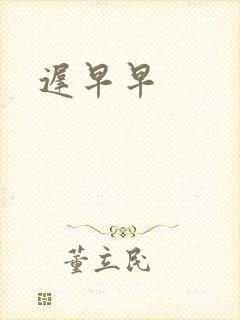 遲早早
董立民